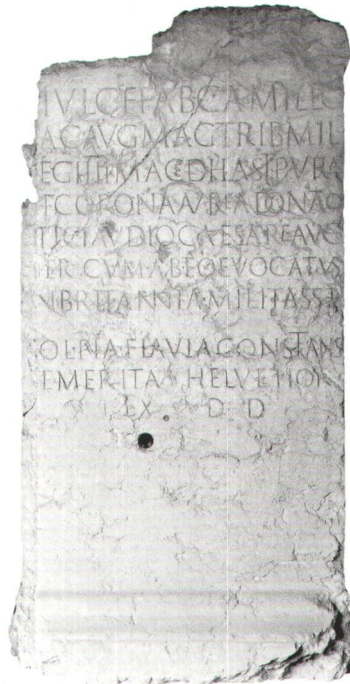 IVL C F FAB CAMILL
AC AVG MAG TRIB MIL
EG IIII MACED HAST PVRA
ET CORONA AVREA DONATO
TI CLAVDIO CAESARE AVG
ITER CVM AB EO EVOCATVS
N BRITANNIA MILITASSET
COL PIA FLAVIA CONSTANS
EMERITA HELVETIOR
EX D D